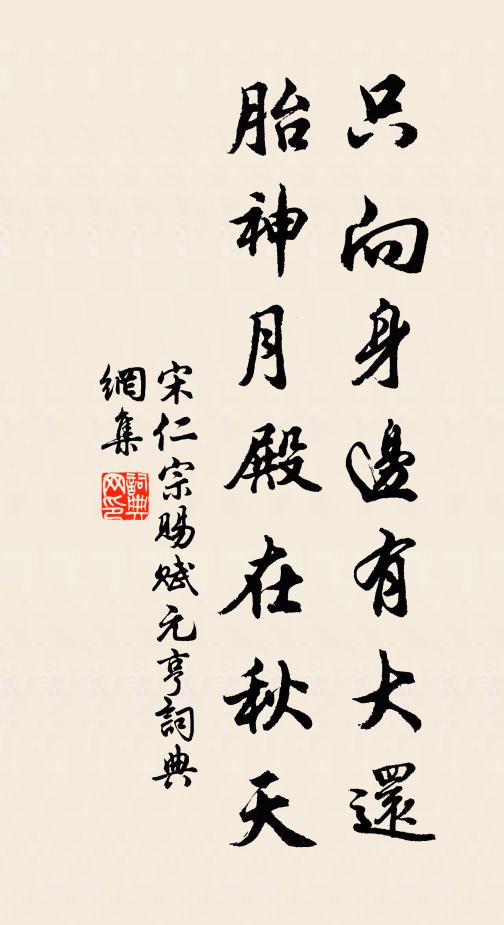 只向身邊有大還
胎神月殿在秋天
宋仁宗賜赋元亨詞典
網集
詞典
网印